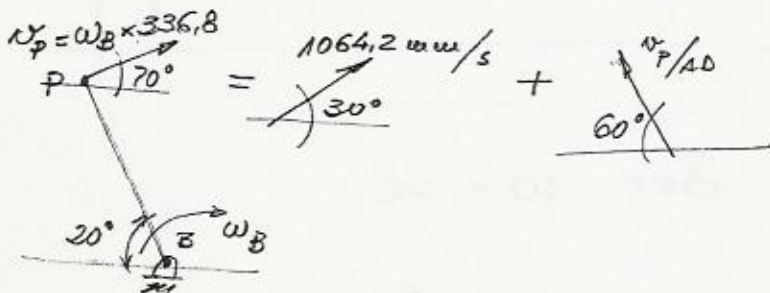 v_P = ω_B × 336,8
P 70°
=
1064,2 mm/s
30°
+
v_P/AD
60°
20° B ω_B